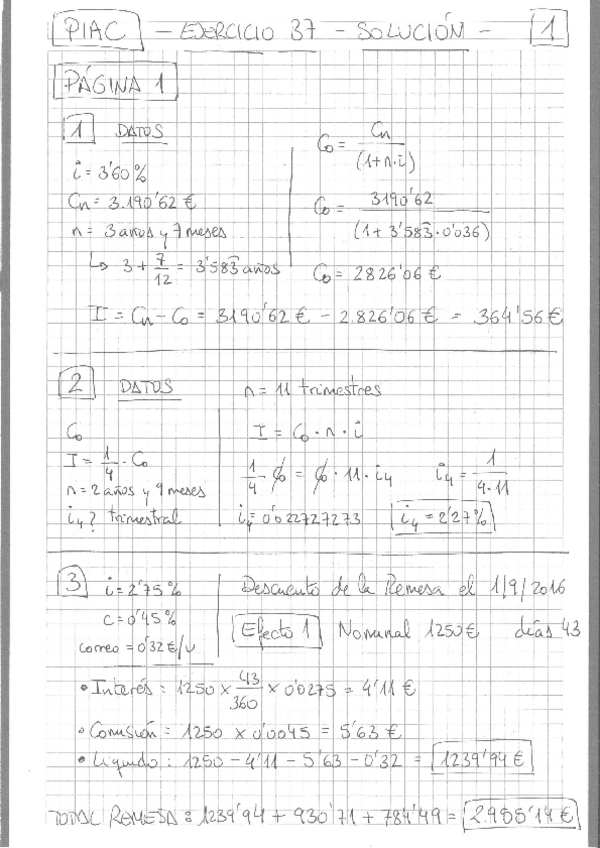 PIAC - EJERCICIO 37 - SOLUCIÓN - 1
PÁGINA 1
1 DATOS
i = 3'60%
Cn = 3.190'62 €
n = 3 años y 7 meses
↳ 3 + 7/12 = 3'583 años
Co = Cn / (1+n·i)
Co = 3190'62 / (1+3'583·0'036)
Co = 2826'06 €
I = Cn - Co = 3190'62 € - 2.826'06 € = 364'56 €
2 DATOS n = 11 trimestres
Co
I = 1/4 · Co
n = 2 años y 9 meses
i4? trimestral
I = Co · n · i
1/4 · Co = Co · 11 · i4 i4 = 1 / 4·11
i4 = 0'022727273 i4 = 2'27%
3 i = 2'75%
c = 0'45%
correo = 0'32 €/u
Descuento de la Remesa el 1/9/2016
Efecto 1 Nominal 1250 € días 43
• Interés: 1250 x 43/360 x 0'0275 = 4'11 €
• Comisión = 1250 x 0'0045 = 5'63 €
• Líquido: 1250 - 4'11 - 5'63 - 0'32 = 1239'94 €
TOTAL REMESA: 1239'94 + 930'71 + 784'49 = 2.955'14 €